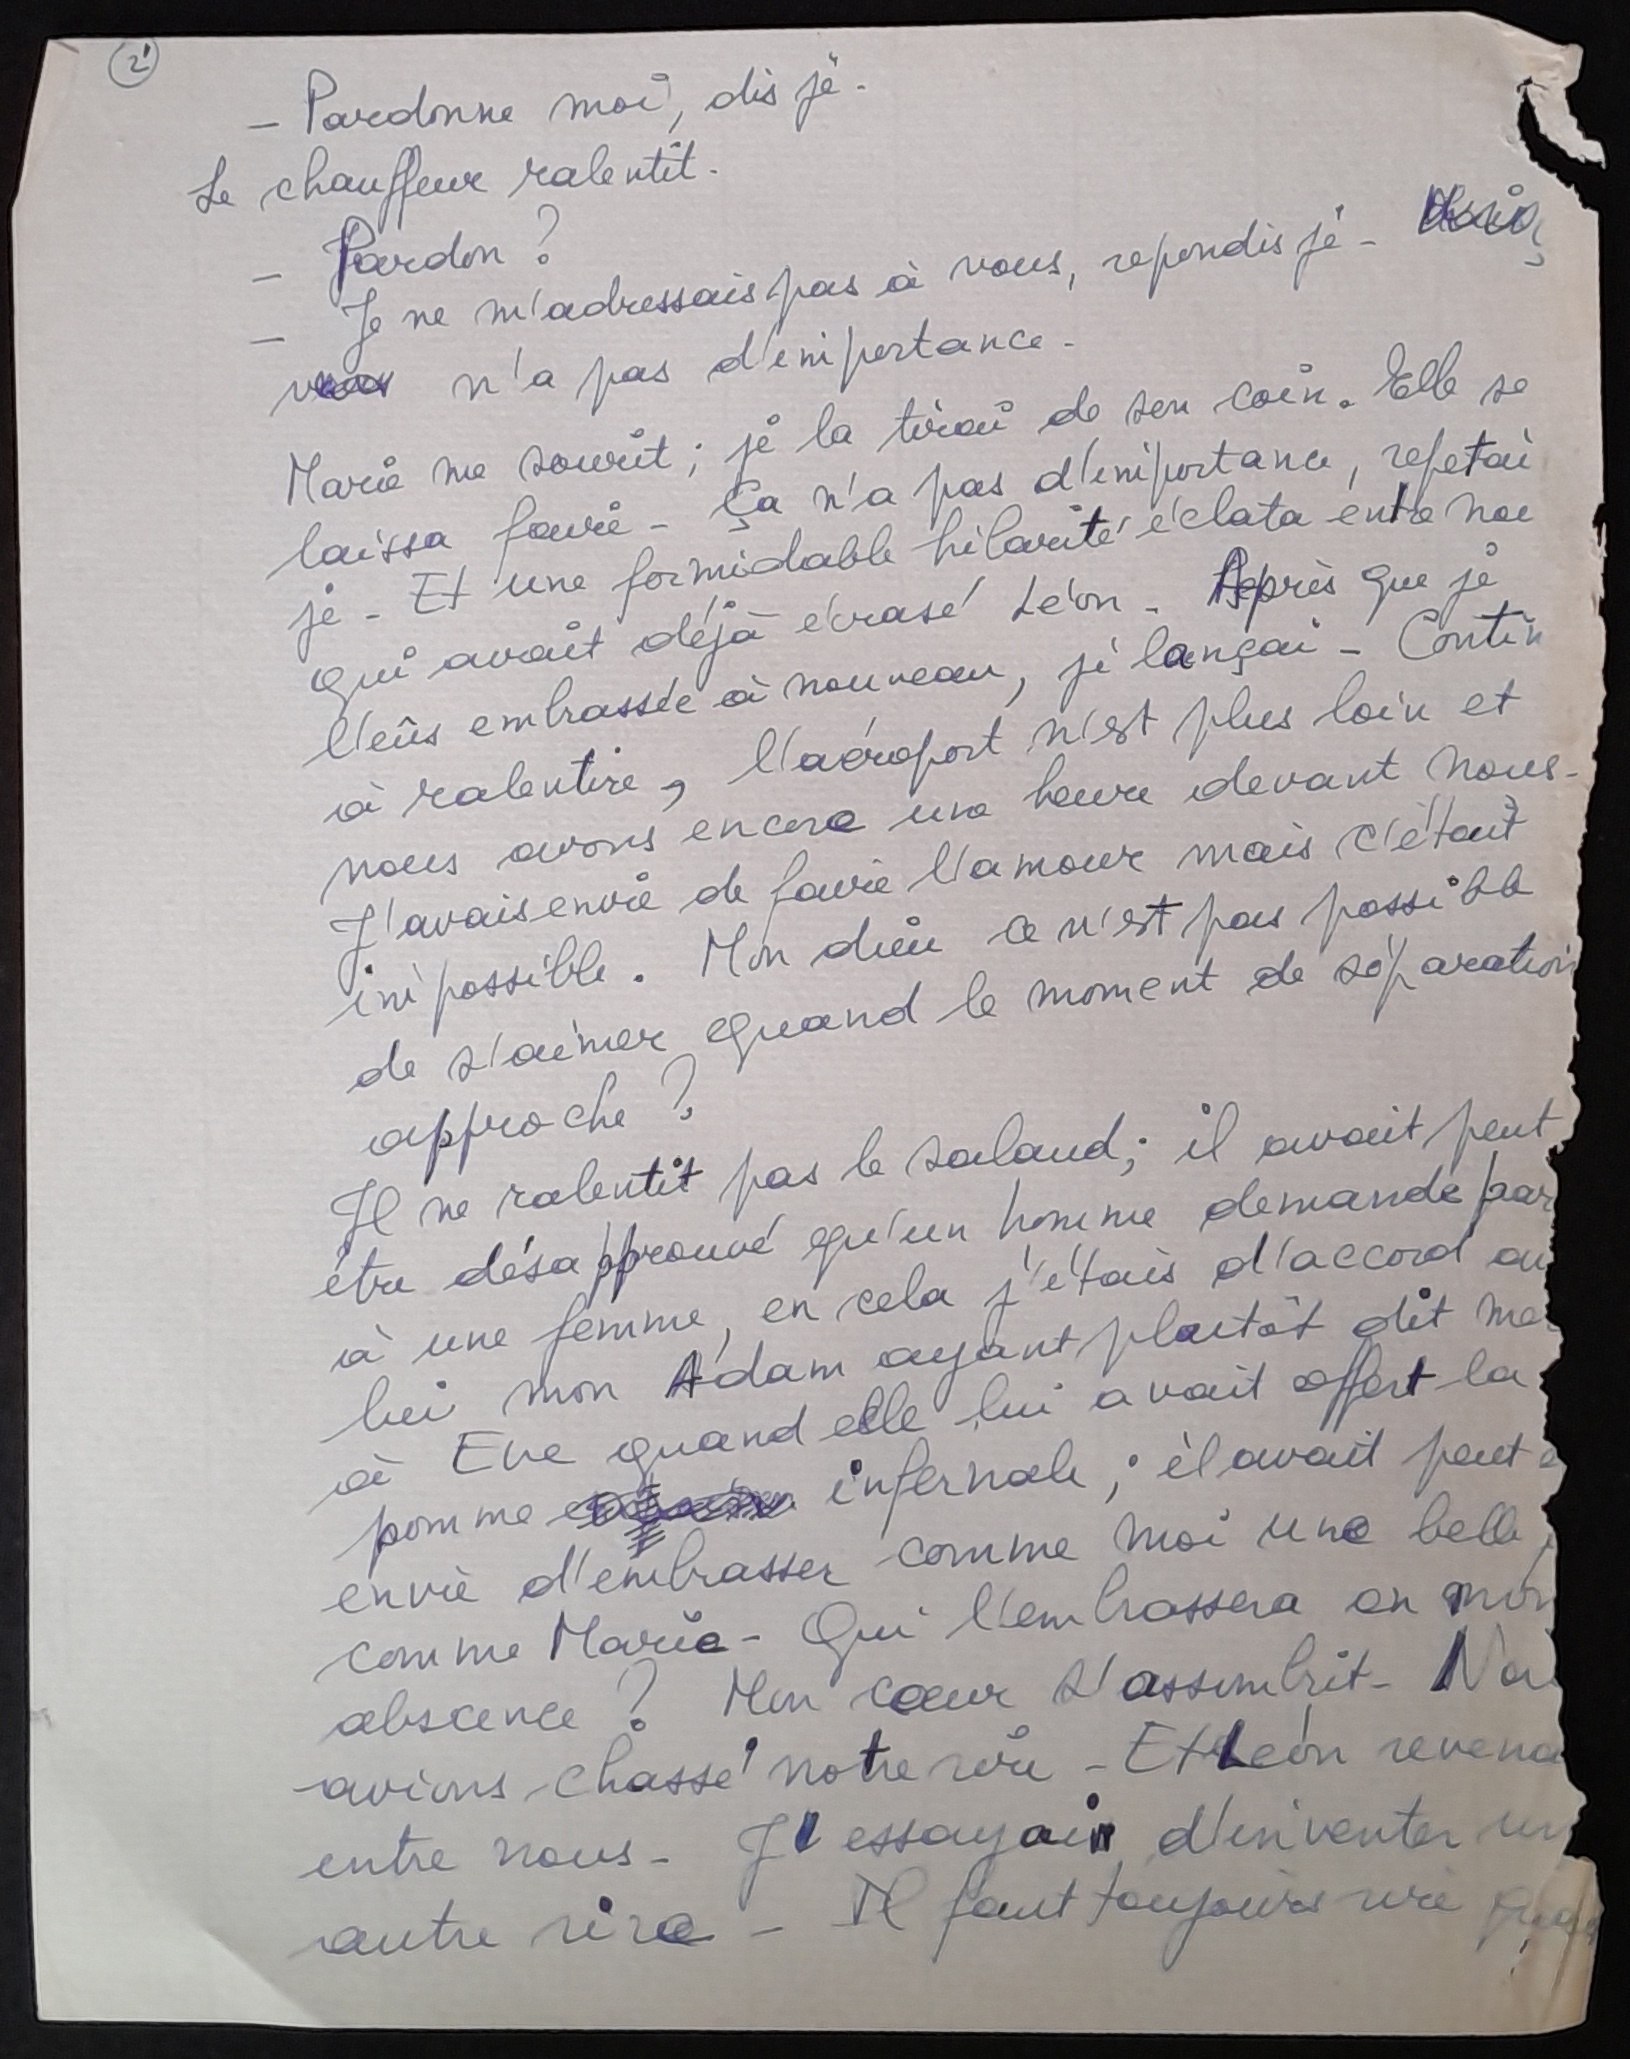 2'
- Pardonne moi, dis je.
Le chauffeur ralentit.
- Pardon ?
- Je ne m'adressais pas à vous, repondis je -
n'a pas d'importance.
Marie me sourit ; je la tirai de son coin. Elle se
laissa faire - Ça n'a pas d'importance, repetai
je - Et une formidable hilarité éclata entre nou
qui avait déjà écrasé Léon - Après que je
l'eûs embrassée à nouveau, je lançai - Contin
à ralentire, l'aéroport n'est plus loin et
nous avons encore une heure devant nous -
J'avais envie de faire l'amour mais c'était
impossible. Mon dieu ce n'est pas possible
de s'aimer quand le moment de séparation
approche ?
Il ne ralentit pas le salaud ; il avait peut
être désapprouvé qu'un homme demande par
à une femme, en cela j'étais d'accord av
lui mon Adam ayant plutôt dit me
à Eve quand elle lui avait offert la
pomme infernale ; il avait peut ê
envie d'embrasser comme moi une belle
comme Marie - Qui l'embrassera en mon
abscence ? Mon cœur s'assombrit - Nou
avions chassé notre rire - Et Léon revena
entre nous - J'essayai d'inventer un
autre rire - Il faut toujours rire